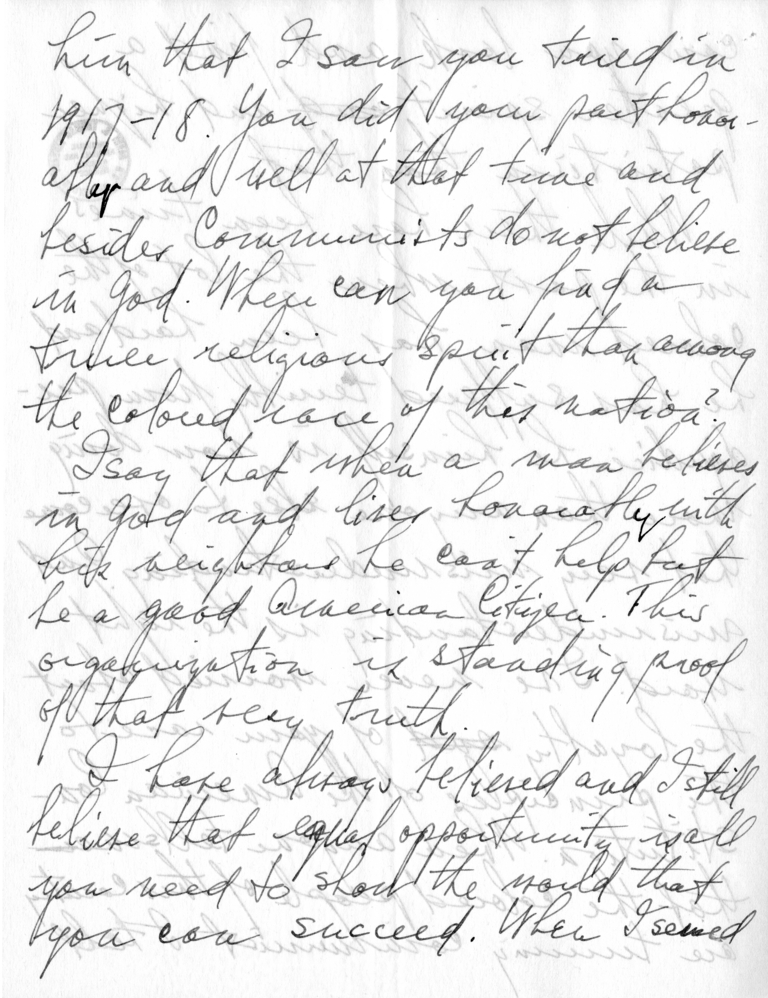 him that I saw you tried in
1917-18. You did your part honor-
ably and well at that time and
besides Communists do not believe
in God. Where can you find a
truer religious spirit than among
the colored race of this nation?
I say that when a man believes
in God and lives honorably with
his neighbors he can't help but
be a good American Citizen. This
organization is standing proof
of that very truth.
I have always believed and I still
believe that equal opportunity is all
you need to show the world that
you can succeed. When I served